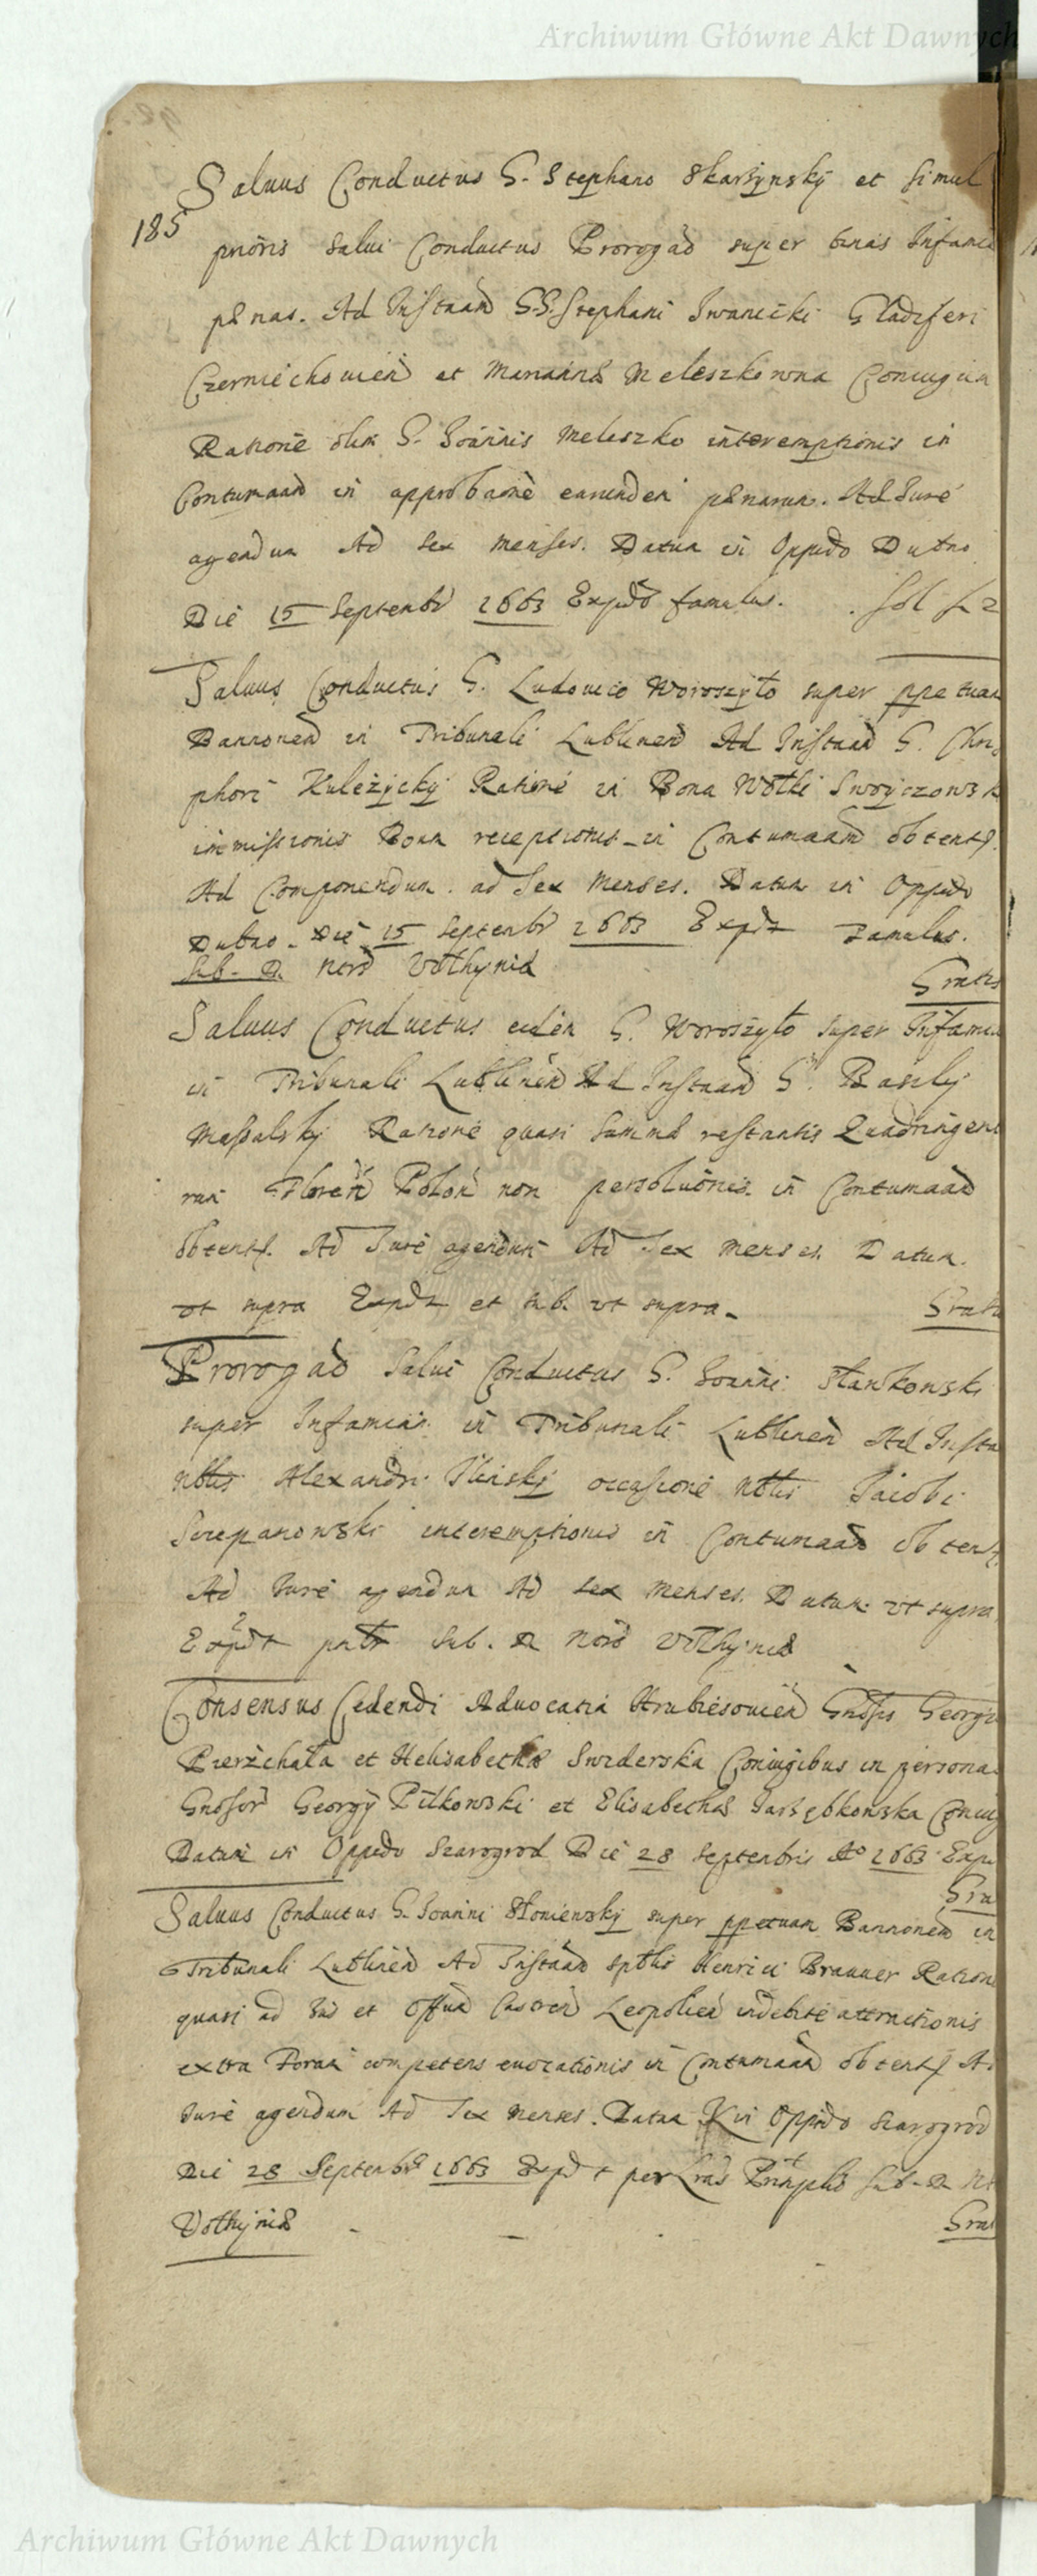 Archiwum Główne Akt Dawnych
Saluus Conductus G. Stephano Skarżynskÿ et simul
185
prioris Salui Conductus Prorogaō super binas Infamiæ
pænas. Ad Instaāō GG. Stephani Iwanicki Gladiferi
Czerniechouiēn et Mariannæ Meleszkowna Coniugum
Ratione olim G. Joannis Meleszko interemptionis in
Contumaāō in approbaōnē earundem pænarum. Ad Jure
agendum Ad sex menses. Datum in Oppido Dubno
Die 15 Septembr 1663 Expdō famulus. Sol f 2
Saluus Conductus G. Ludouico Woroszyło super ppetuam
Bannonēm in Tribunali Lublinēn Ad Instaāō G. Chris
phori Kuleżÿckÿ Ratione in Bona Wolki Swoÿczowsk
immissionis Bonn receptionis in Contumaāām obtentæ.
Ad Componendum. ad sex Menses. Datum in Oppido
Dubno. Die 15 Septembr 1663 Expdt Famulus.
Sub. D. Nord Volhynia
Gratis
Saluus Conductus eidem G. Woroszyło super Infamiam
in Tribunali Lublinēn Ad Instaāō G. Basilÿ
Massalskÿ Ratione quasi summæ restantis Quadringent
rum Floreñ Polon non persolutionis in Contumaāō
obtentæ. Ad Jure agendum Ad Sex menses. Datum.
vt supra Expdt et sub. vt supra.
Gratis
Prorogaō Salui Conductus G. Joanni Stankowski
super Infamiam in Tribunali Lublinēn Ad Insta
Nobilis Alexandri Ilinskÿ occasione Nobilis Jacobi
Sczepanowski interemptionis in Contumaāō obtent
Ad Jure agendum Ad sex menses. Datum vt supra
Expdt Sub. D Nord Volhynia
Consensus Cedendi Aduocatia Hrubiesouiēn Gnosis Georgio
Pierzchała et Helisabethæ Swiderska Coniugibus in persona
Gnosor Georgÿ Pilkowski et Elisabethæ Jastrębkowska Coniug
Datum in Oppido Szarogrod Die 28 Septembris Ao 1663 Exp
Gra
Saluus Conductus G. Joanni Słomienskÿ super ppetuam Bannonēm in
Tribunali Lublinēn Ad Instaāō Henrici Brauuer Ratione
quasi ad Jus et Offum Castren Leopoliēn indebite attractionis
extra Forum competens euocationis in Contumaāō obtentæ Ad
Jure agendum Ad Sex menses. Datum in Oppido Szarogrod
Die 28 Septembr 1663 Expdt per Sub. D
Volhyniæ
Gra
Archiwum Główne Akt Dawnych